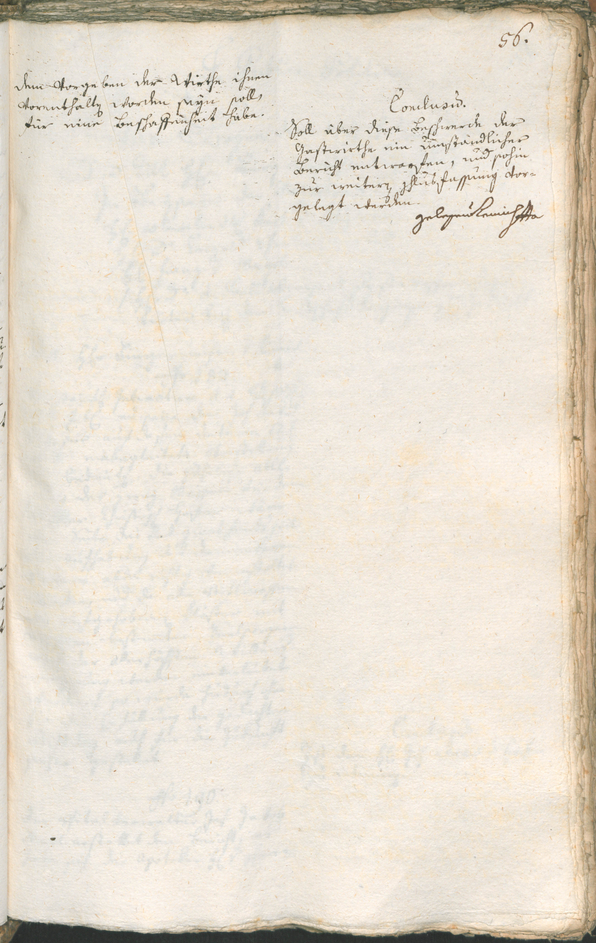 56.
dem Vorgeben der Wirthe ihnen
vorenthalten worden seyn solle
für eine Beschaffenheit habe.
Conclusum.
Soll über diese Beschwerde der
Gastwirthe ein umständlicher
Bericht entworfen, und sohin
zur weitern schlussfassung vor-
gelegt werden.